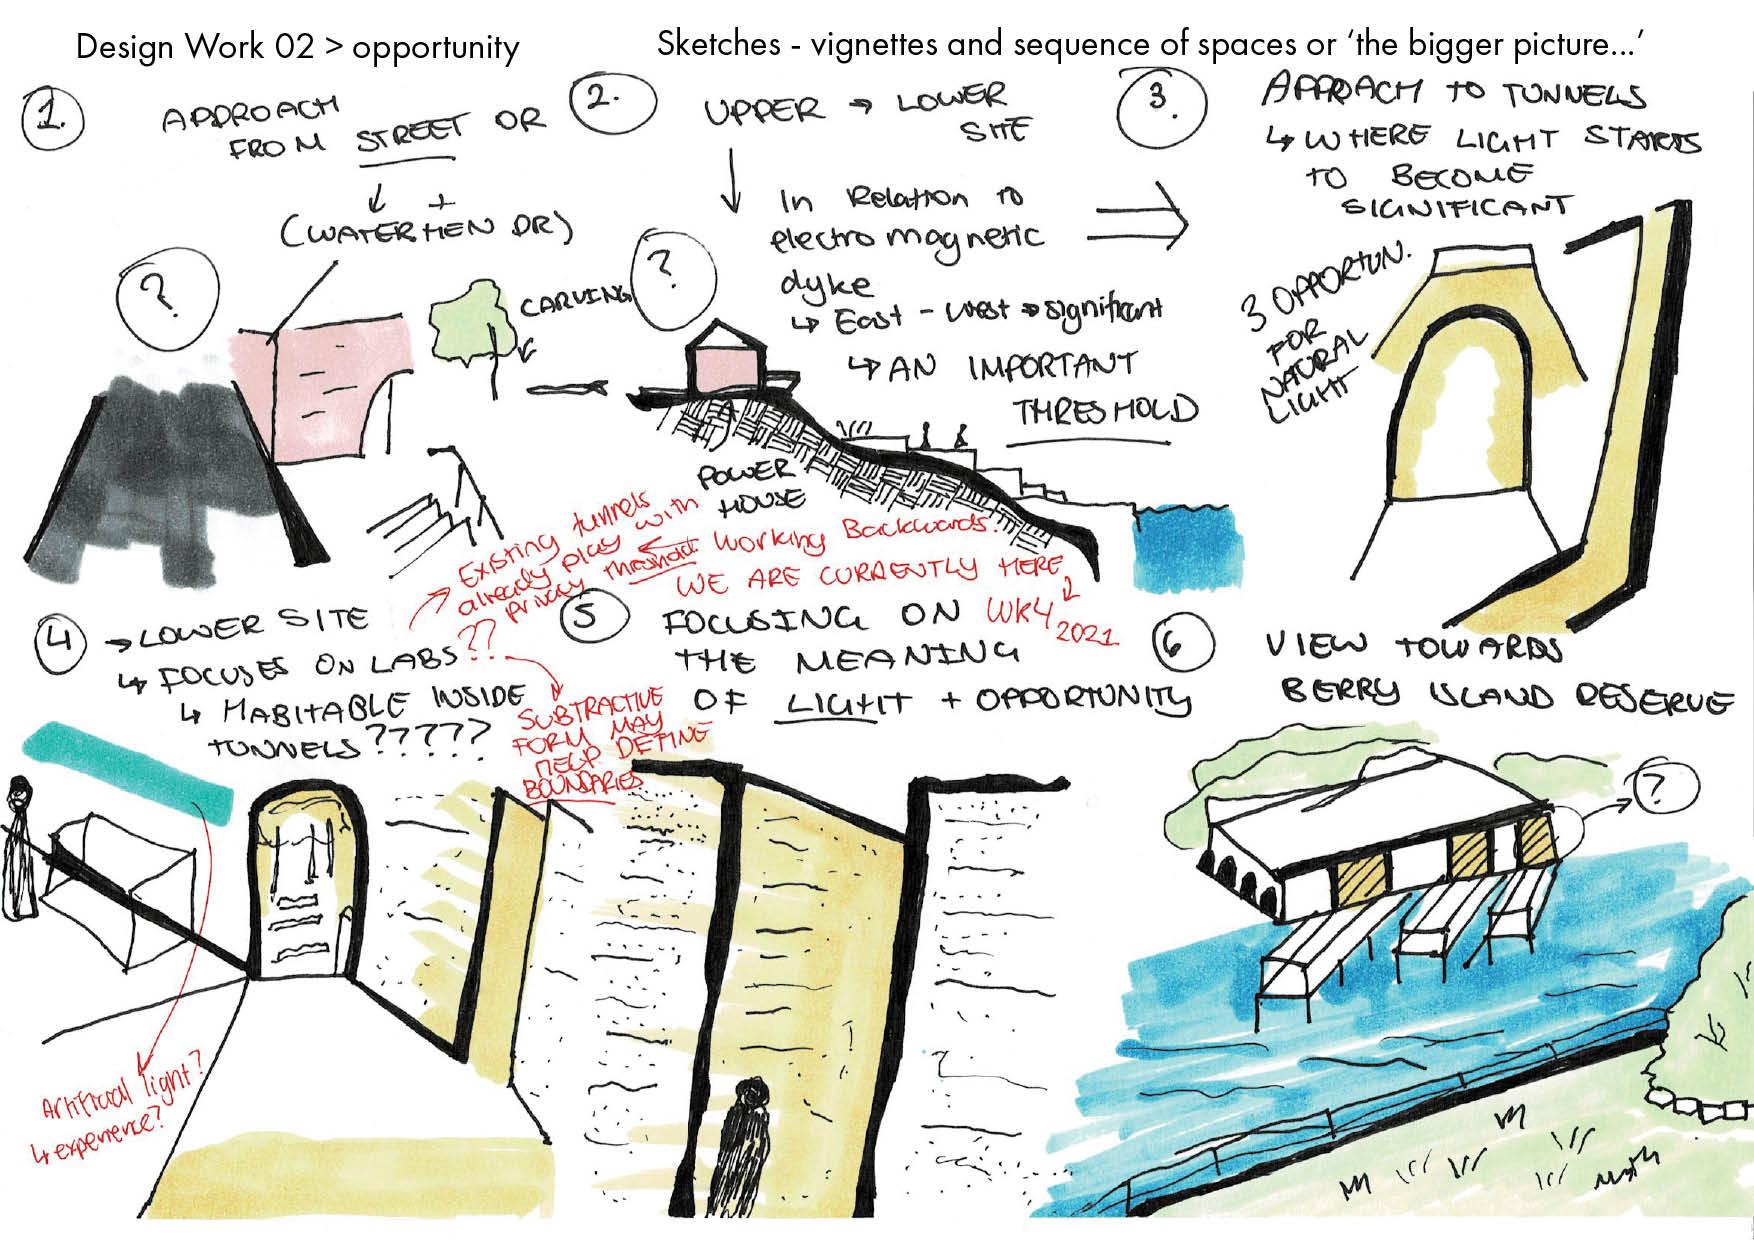 Design Work 02 > opportunity
Sketches - vignettes and sequence of spaces or ‘the bigger picture...’
1.
APPROACH
FROM STREET OR
+
(WATERHEN DR)
?
2.
UPPER → LOWER
SITE
In Relation to
electromagnetic
dyke
↳ East - West → significant
↳ AN IMPORTANT
THRESHOLD
?
CARVING
POWER
HOUSE
3.
APPROACH TO TUNNELS
↳ WHERE LIGHT STARTS
TO BECOME
SIGNIFICANT
3 OPPORTUN.
FOR
NATURAL
LIGHT
Existing tunnels
already play with
privacy threshold
Working Backwards?
WE ARE CURRENTLY HERE
WK4
2021
4
→ LOWER SITE
↳ FOCUSES ON LABS ??
↳ HABITABLE INSIDE
TUNNELS?????
SUBTRACTIVE
FORM MAY
HELP DEFINE
BOUNDARIES
Artificial light?
↳ experience?
5
FOCUSING ON
THE MEANING
OF LIGHT + OPPORTUNITY
6
VIEW TOWARDS
BERRY ISLAND RESERVE
?